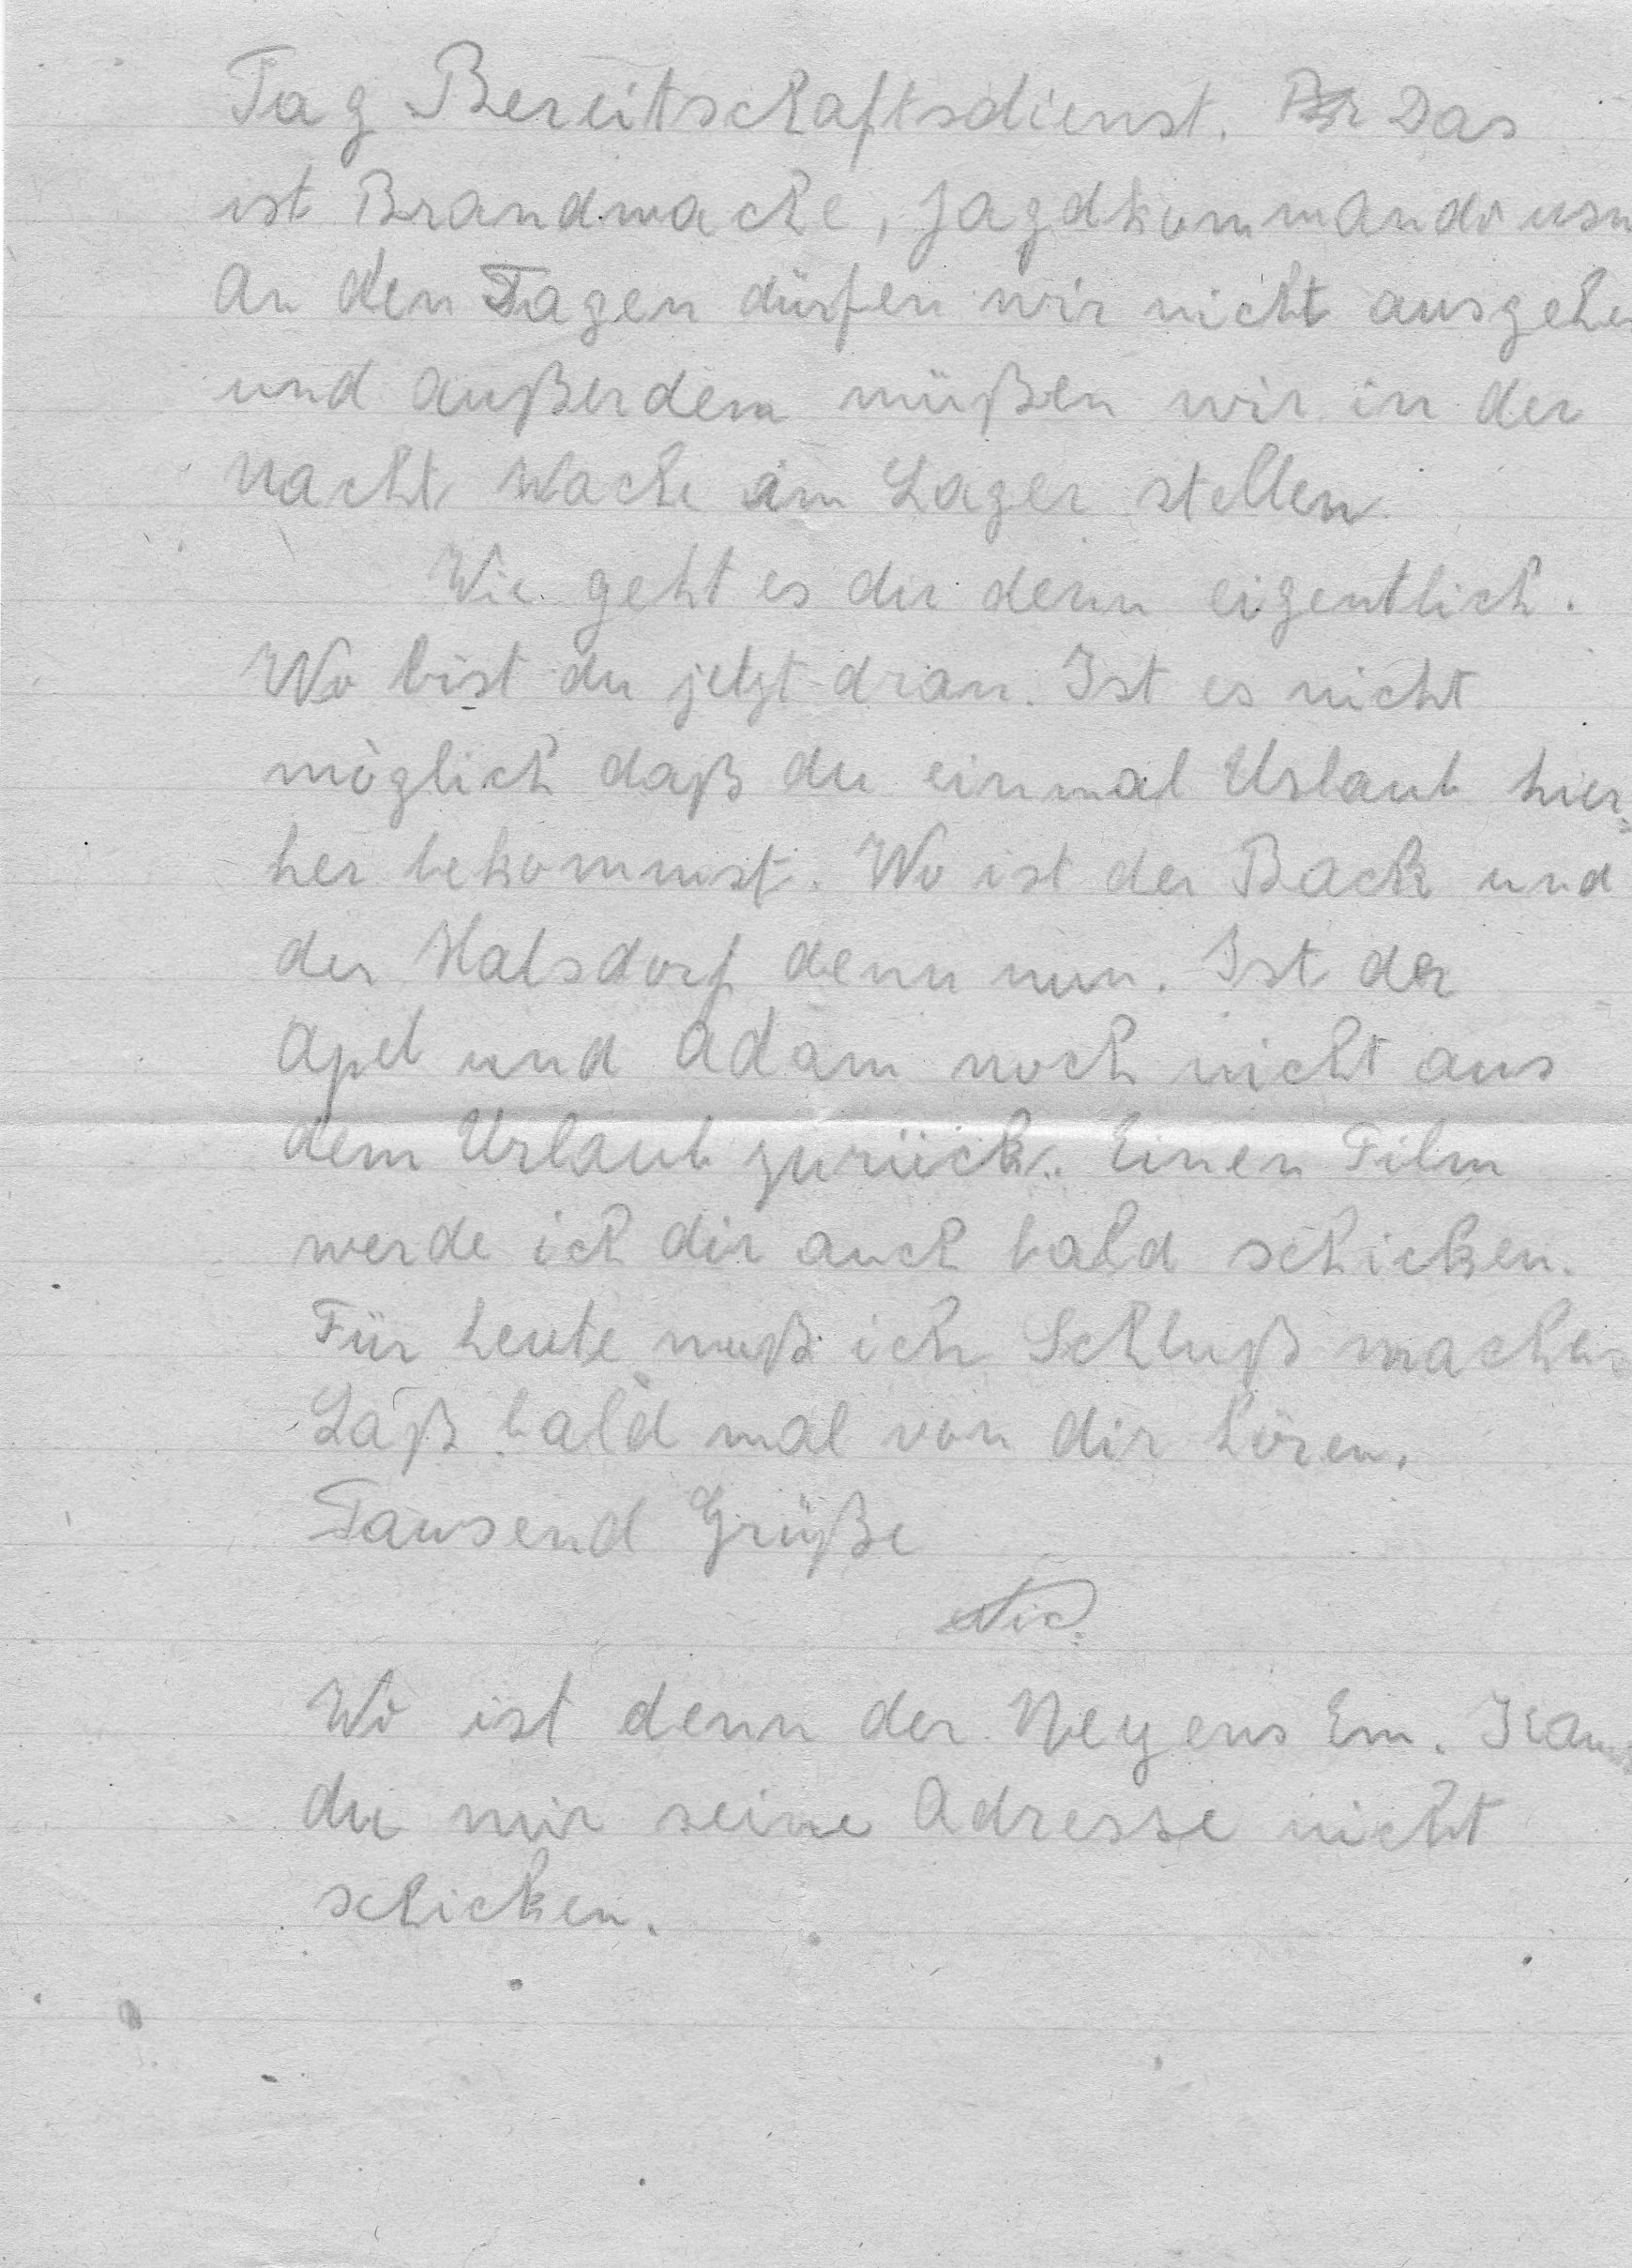 Tag Bereitschaftsdienst. Das
ist Brandwache, Jagdkommando usw
An den Tagen dürfen wir nicht ausgehen
und außerdem müßen wir in der
Nacht Wache im Lager stellen
Wie geht es dir denn eigentlich.
Wo bist du jetzt dran. Ist es nicht
möglich daß du einmal Urlaub hier=
her bekommst. Wo ist der Back und
der Halsdorf denn nun. Ist der
Apel und Adam noch nicht aus
dem Urlaub zurück. Einen Film
werde ich dir auch bald schicken.
Für heute muß ich Schluß machen
Laß bald mal von dir hören.
Tausend Grüße
Nic.
Wo ist denn der Neyens Em. Kanns
du mir seine Adresse nicht
schicken.